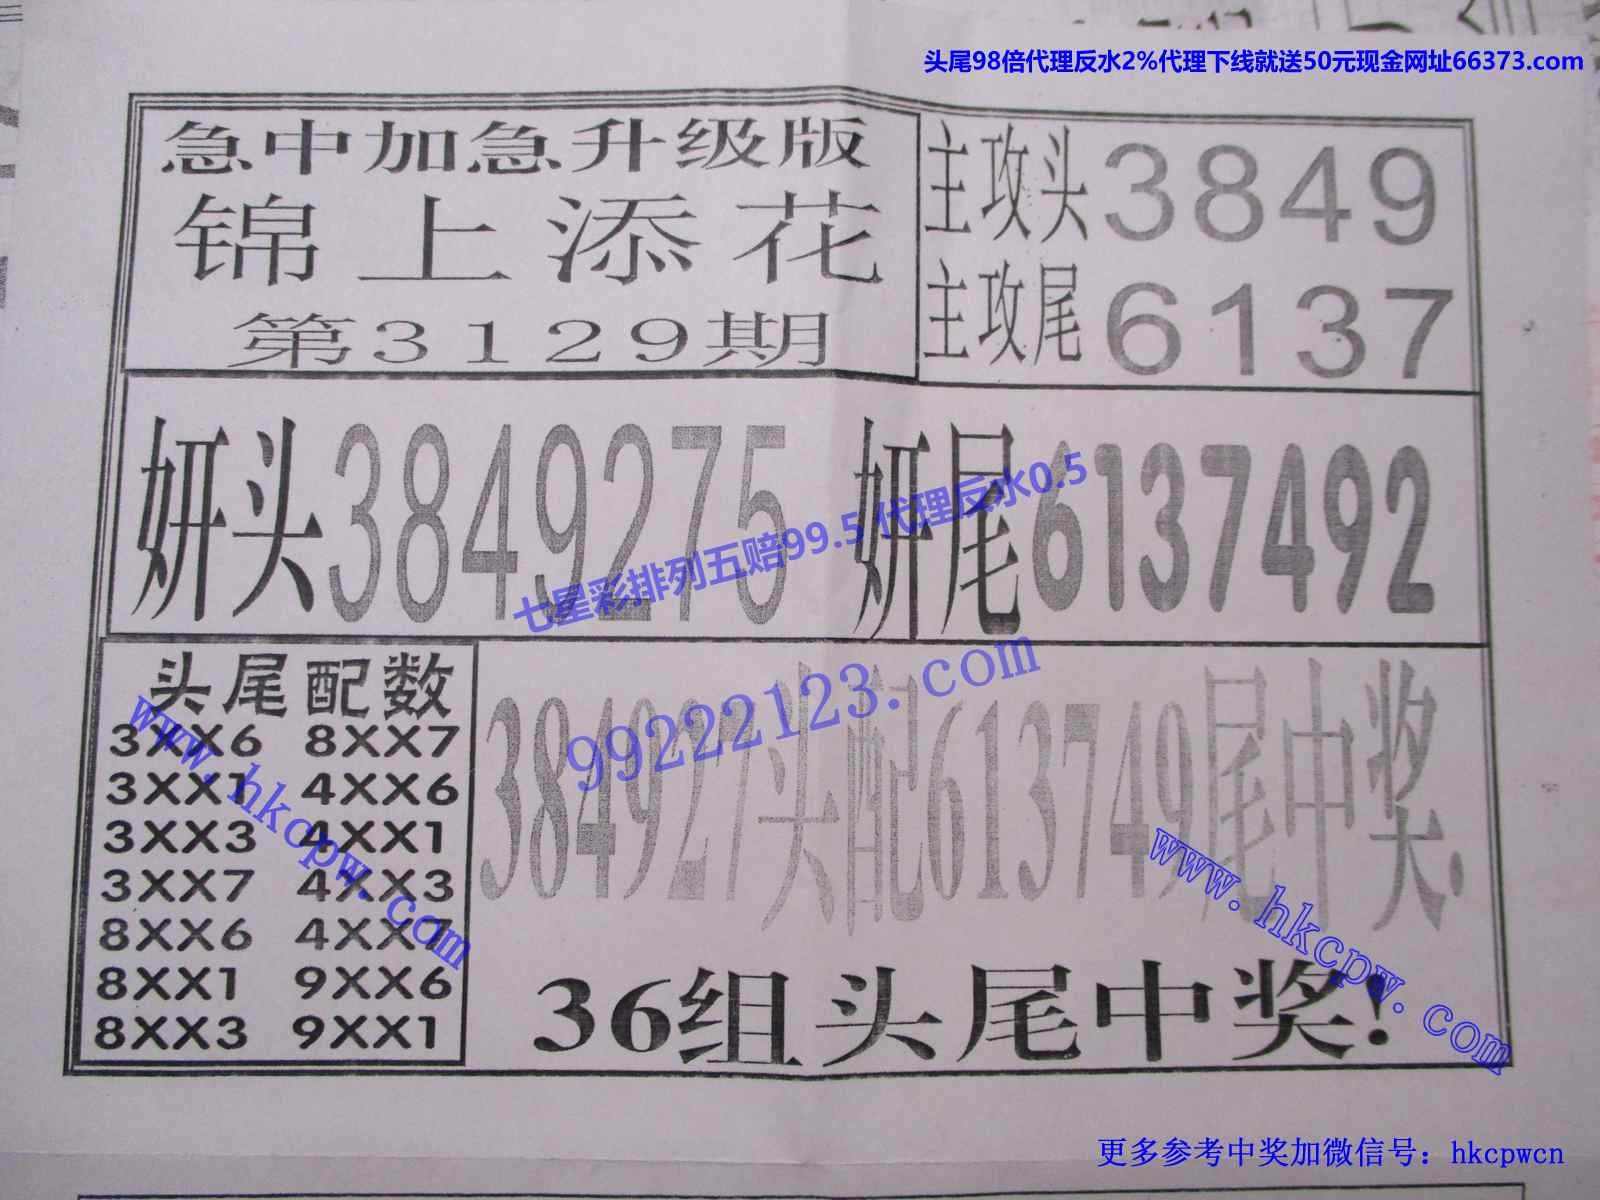 头尾98倍代理反水2%代理下线就送50元现金网址66373.com
急中加急升级版
锦上添花
第3129期
主攻头3849
主攻尾6137
妍头3849275
妍尾6137492
七星彩排列五赔99.5 代理反水0.5
99222123.com
头尾配数
3XX6 8XX7
3XX1 4XX6
3XX3 4XX1
3XX7 4XX3
8XX6 4XX7
8XX1 9XX6
8XX3 9XX1
www.hkcpw.com
384927头配613749尾中奖.
www.hkcpw.com
36组头尾中奖!
更多参考中奖加微信号：hkcpwcn